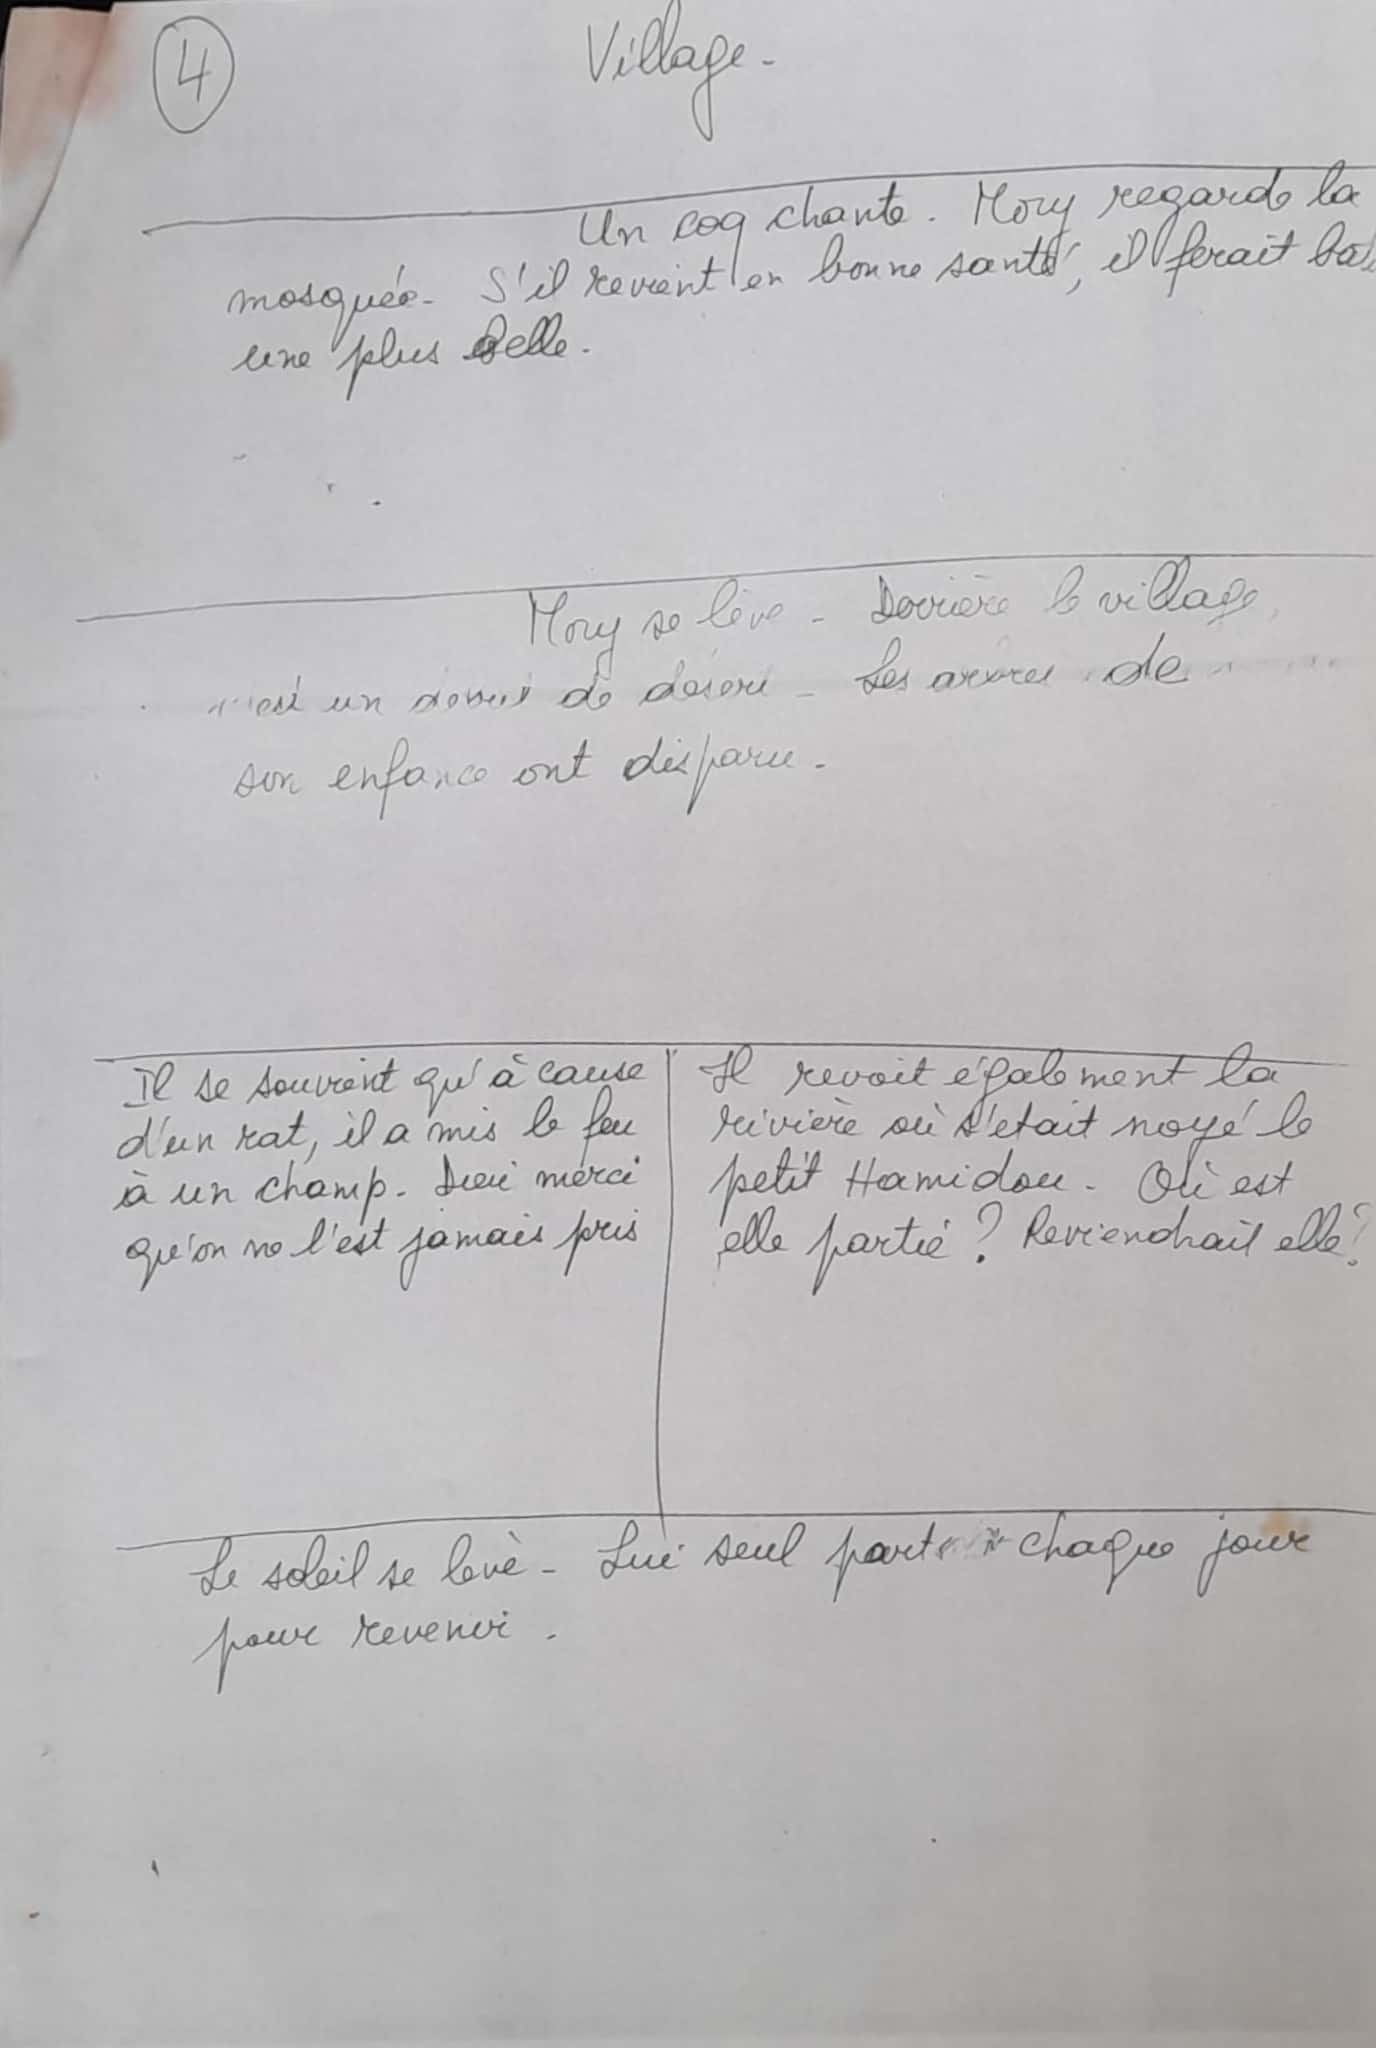 4
Village.
Un coq chante. Mory regarde la
mosquée. S'il revient en bonne santé, il ferait
une plus belle.
Mory se lève. Derrière le village,
c'est un début de désert. Les arbres de
son enfance ont disparu.
Il se souvient qu'à cause
d'un rat, il a mis le feu
à un champ. Dieu merci
qu'on ne l'est jamais pris
Il revoit également la
rivière où s'était noyé le
petit Hamidou. Où est
elle partie ? Reviendrait elle ?
Le soleil se lève. Lui seul part chaque jour
pour revenir.